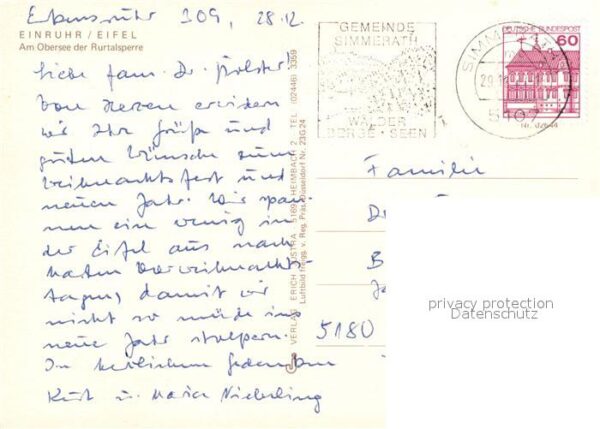 Erkensruhr 109, 28.12.
EINRUHR / EIFEL
Am Obersee der Rurtalsperre
Liebe Fam. Dr.
von Herzen erwidern
wir Ihre Grüße und
guten Wünsche zum
Weihnachtsfest und
neuen Jahr. Wir span-
nen ein wenig in
der Eifel aus nach
harten Vorweihnachts-
tagen, damit wir
nicht so müde ins
neue Jahr stolpern.
In herzlichem Gedenken
Kurt u. Maria Nieberling
VERLAG ERICH JUSTRA 5169 HEIMBACH 2 TEL. (02446) 3399
Luftbild freigg. v. Reg. Präs. Düsseldorf Nr. 23G24
GEMEINDE
SIMMERATH
WÄLDER
BERGE · SEEN
SIMMERATH
5107
DEUTSCHE BUNDESPOST
60
Familie
D
B
5180
privacy protection
Datenschutz